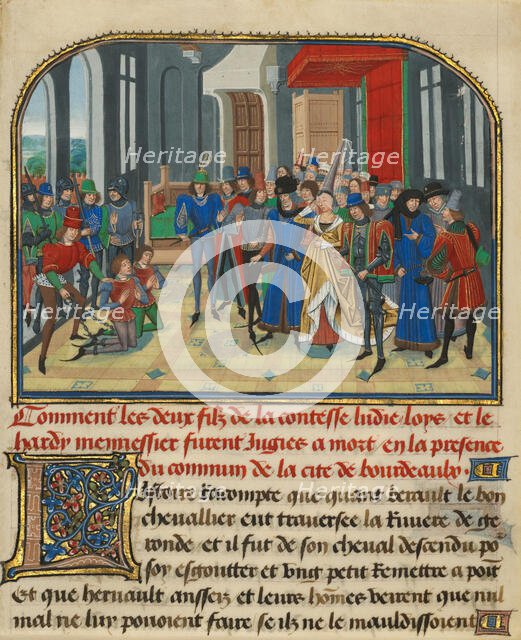 Heritage Heritage Heritage
Heritage Heritage Heritage
Comment les deux filz de la contesse ludie loys et le
hardy mennessier furent Jugies a mort en la presence
du commun de la cite de bourdeaulx
Listoire Racompte que quant herault le bon
chevallier eut traversee la Riviere de ge
ronde et il fut de son cheval descendu po
son esgoutter et ung petit Remettre a poit
Et que heruault ansseiz et leurs hommes veirent que nul
mal ne luy pouoient faire se ilz ne le mauldissoient